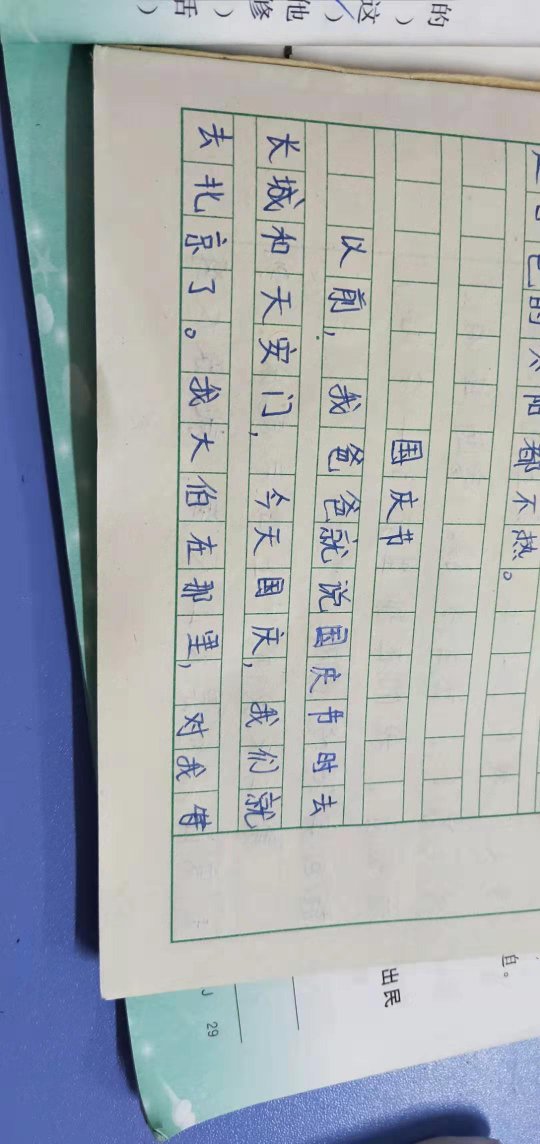 的
这
他
修
舌
都不热。
国庆节
以前，我爸爸就说国庆节时去
长城和天安门，今天国庆，我们就
去北京了。我大伯在那里，对我
出民
29